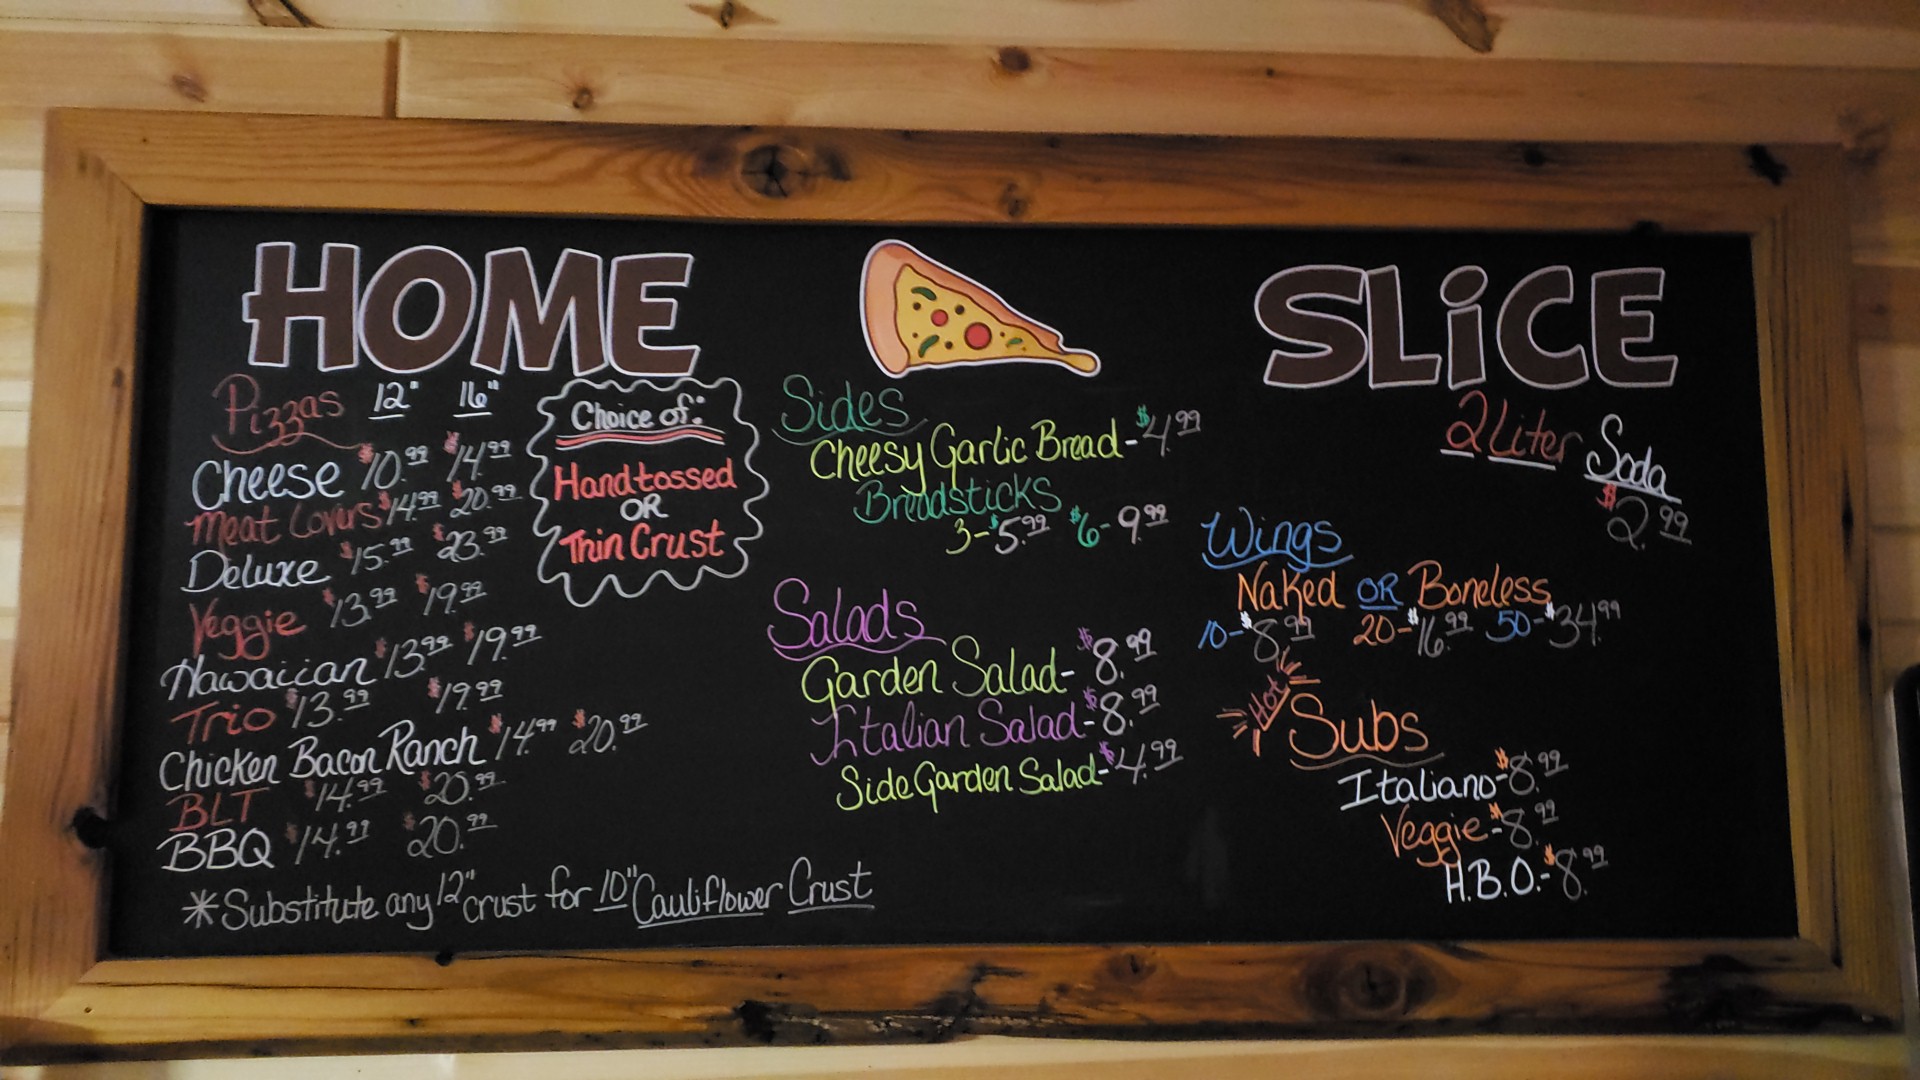 HOME SLiCE
Pizzas 12" 16"
Cheese $10.99 $14.99
Meat Lovers $14.99 $20.99
Deluxe $15.99 $23.99
Veggie $13.99 $19.99
Hawaiian $13.99 $19.99
Trio $13.99 $19.99
Chicken Bacon Ranch $14.99 $20.99
BLT $14.99 $20.99
BBQ $14.99 $20.99
*Substitute any 12" crust for 10" Cauliflower Crust
Choice of:
Handtossed
OR
Thin Crust
Sides
Cheesy Garlic Bread-$4.99
Breadsticks
3-$5.99 $6-9.99
Salads
Garden Salad-$8.99
Italian Salad-$8.99
Side Garden Salad-$4.99
2 Liter Soda
$2.99
Wings
Naked OR Boneless
10-$8.99 20-$16.99 50-$34.99
Hot Subs
Italiano-$8.99
Veggie-$8.99
H.B.O.-$8.99